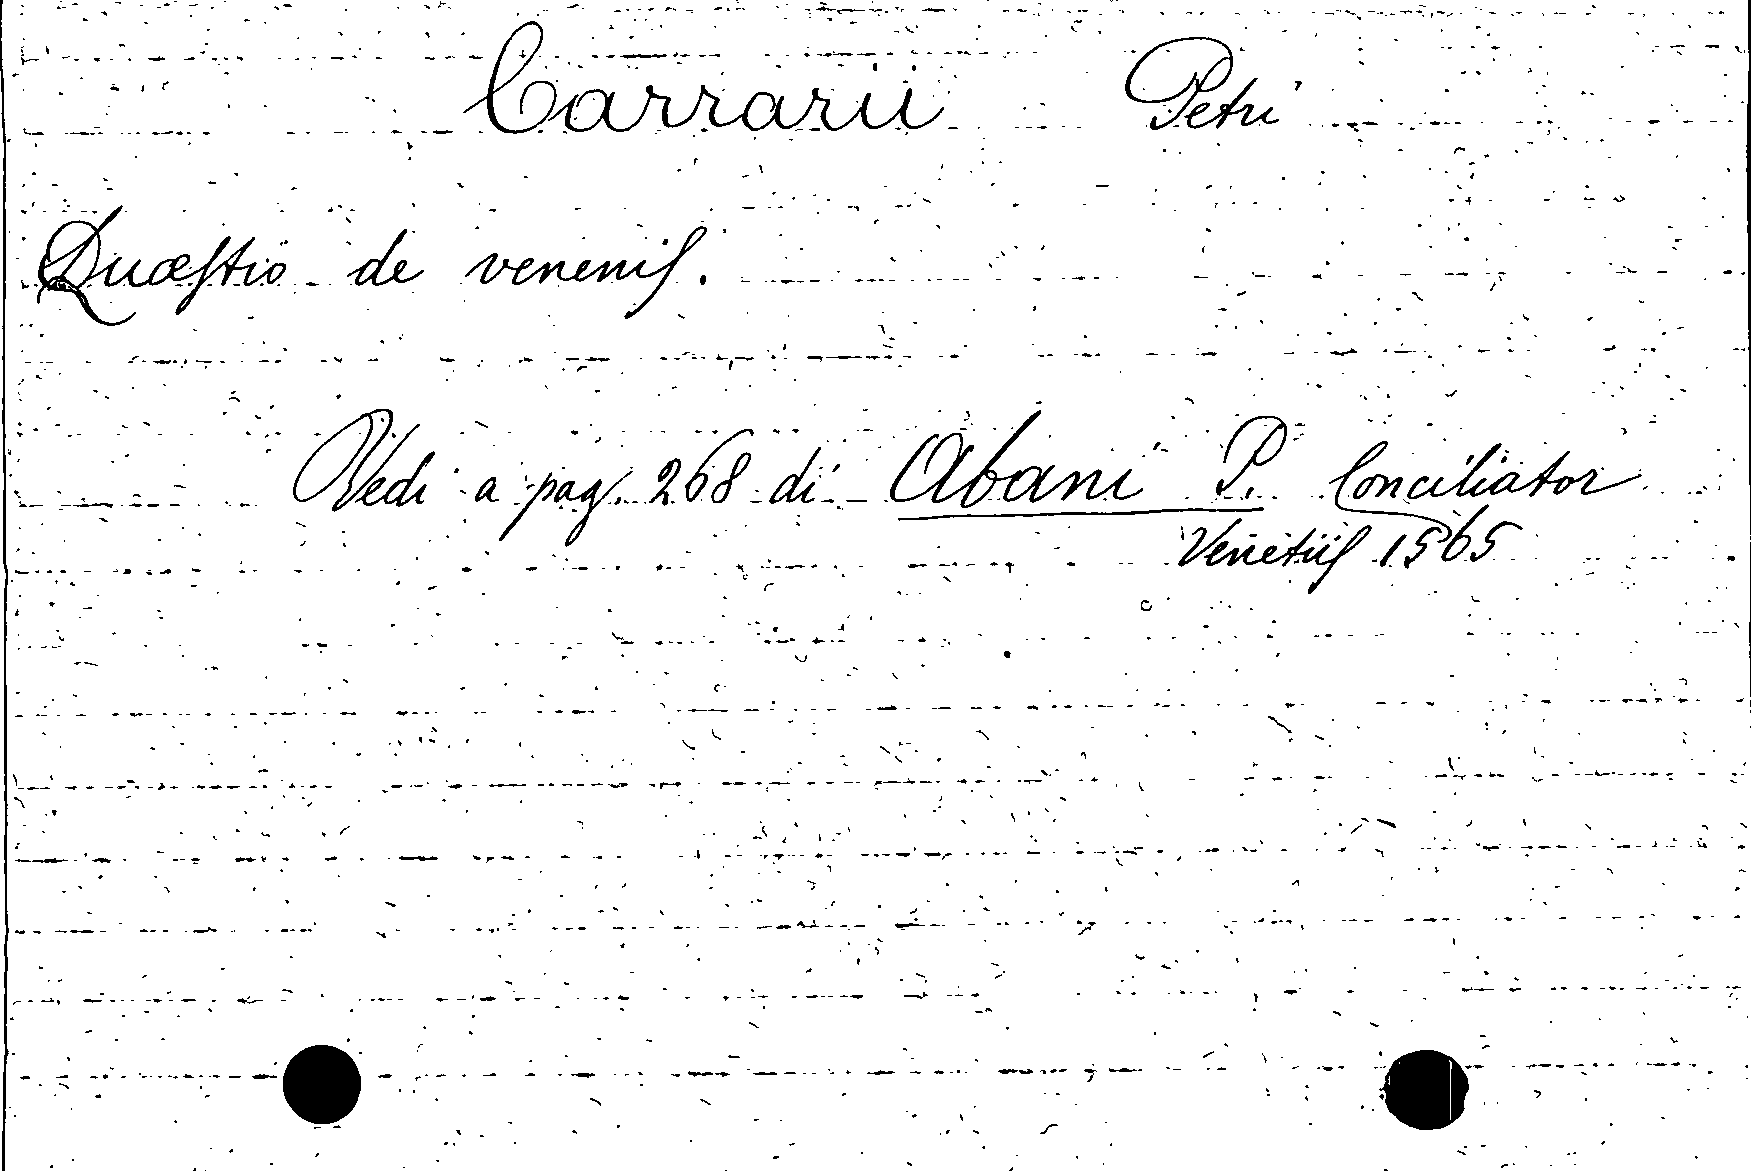 Carrarii Petri
Quæstio de venenis.
Vedi a pag. 268 di Abani P. Conciliator
Venetiis 1565